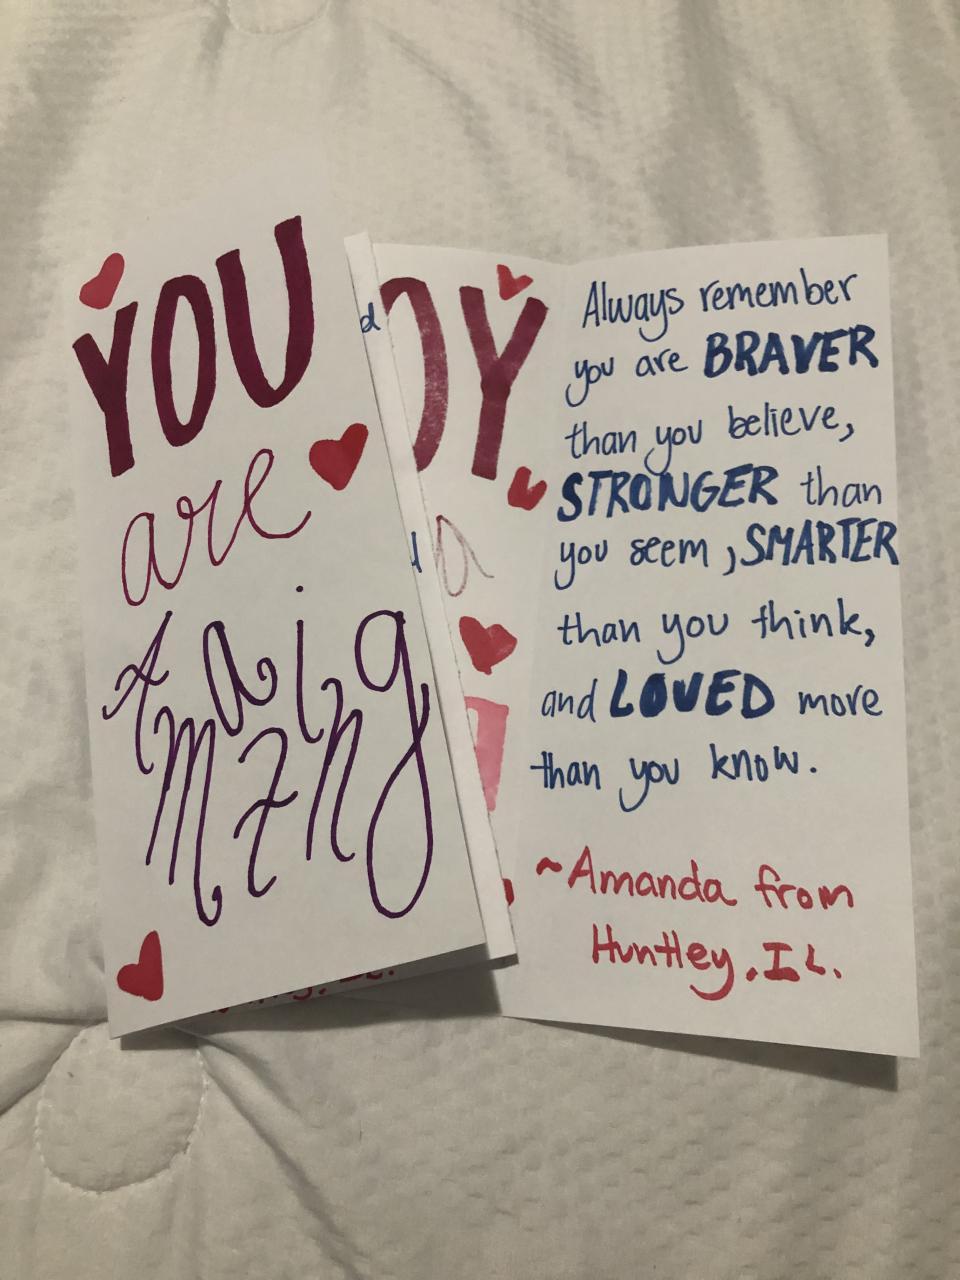 YOU
are
Amaizing
Always remember
you are BRAVER
than you believe,
STRONGER than
you seem, SMARTER
than you think,
and LOVED more
than you know.
~Amanda from
Huntley, IL.